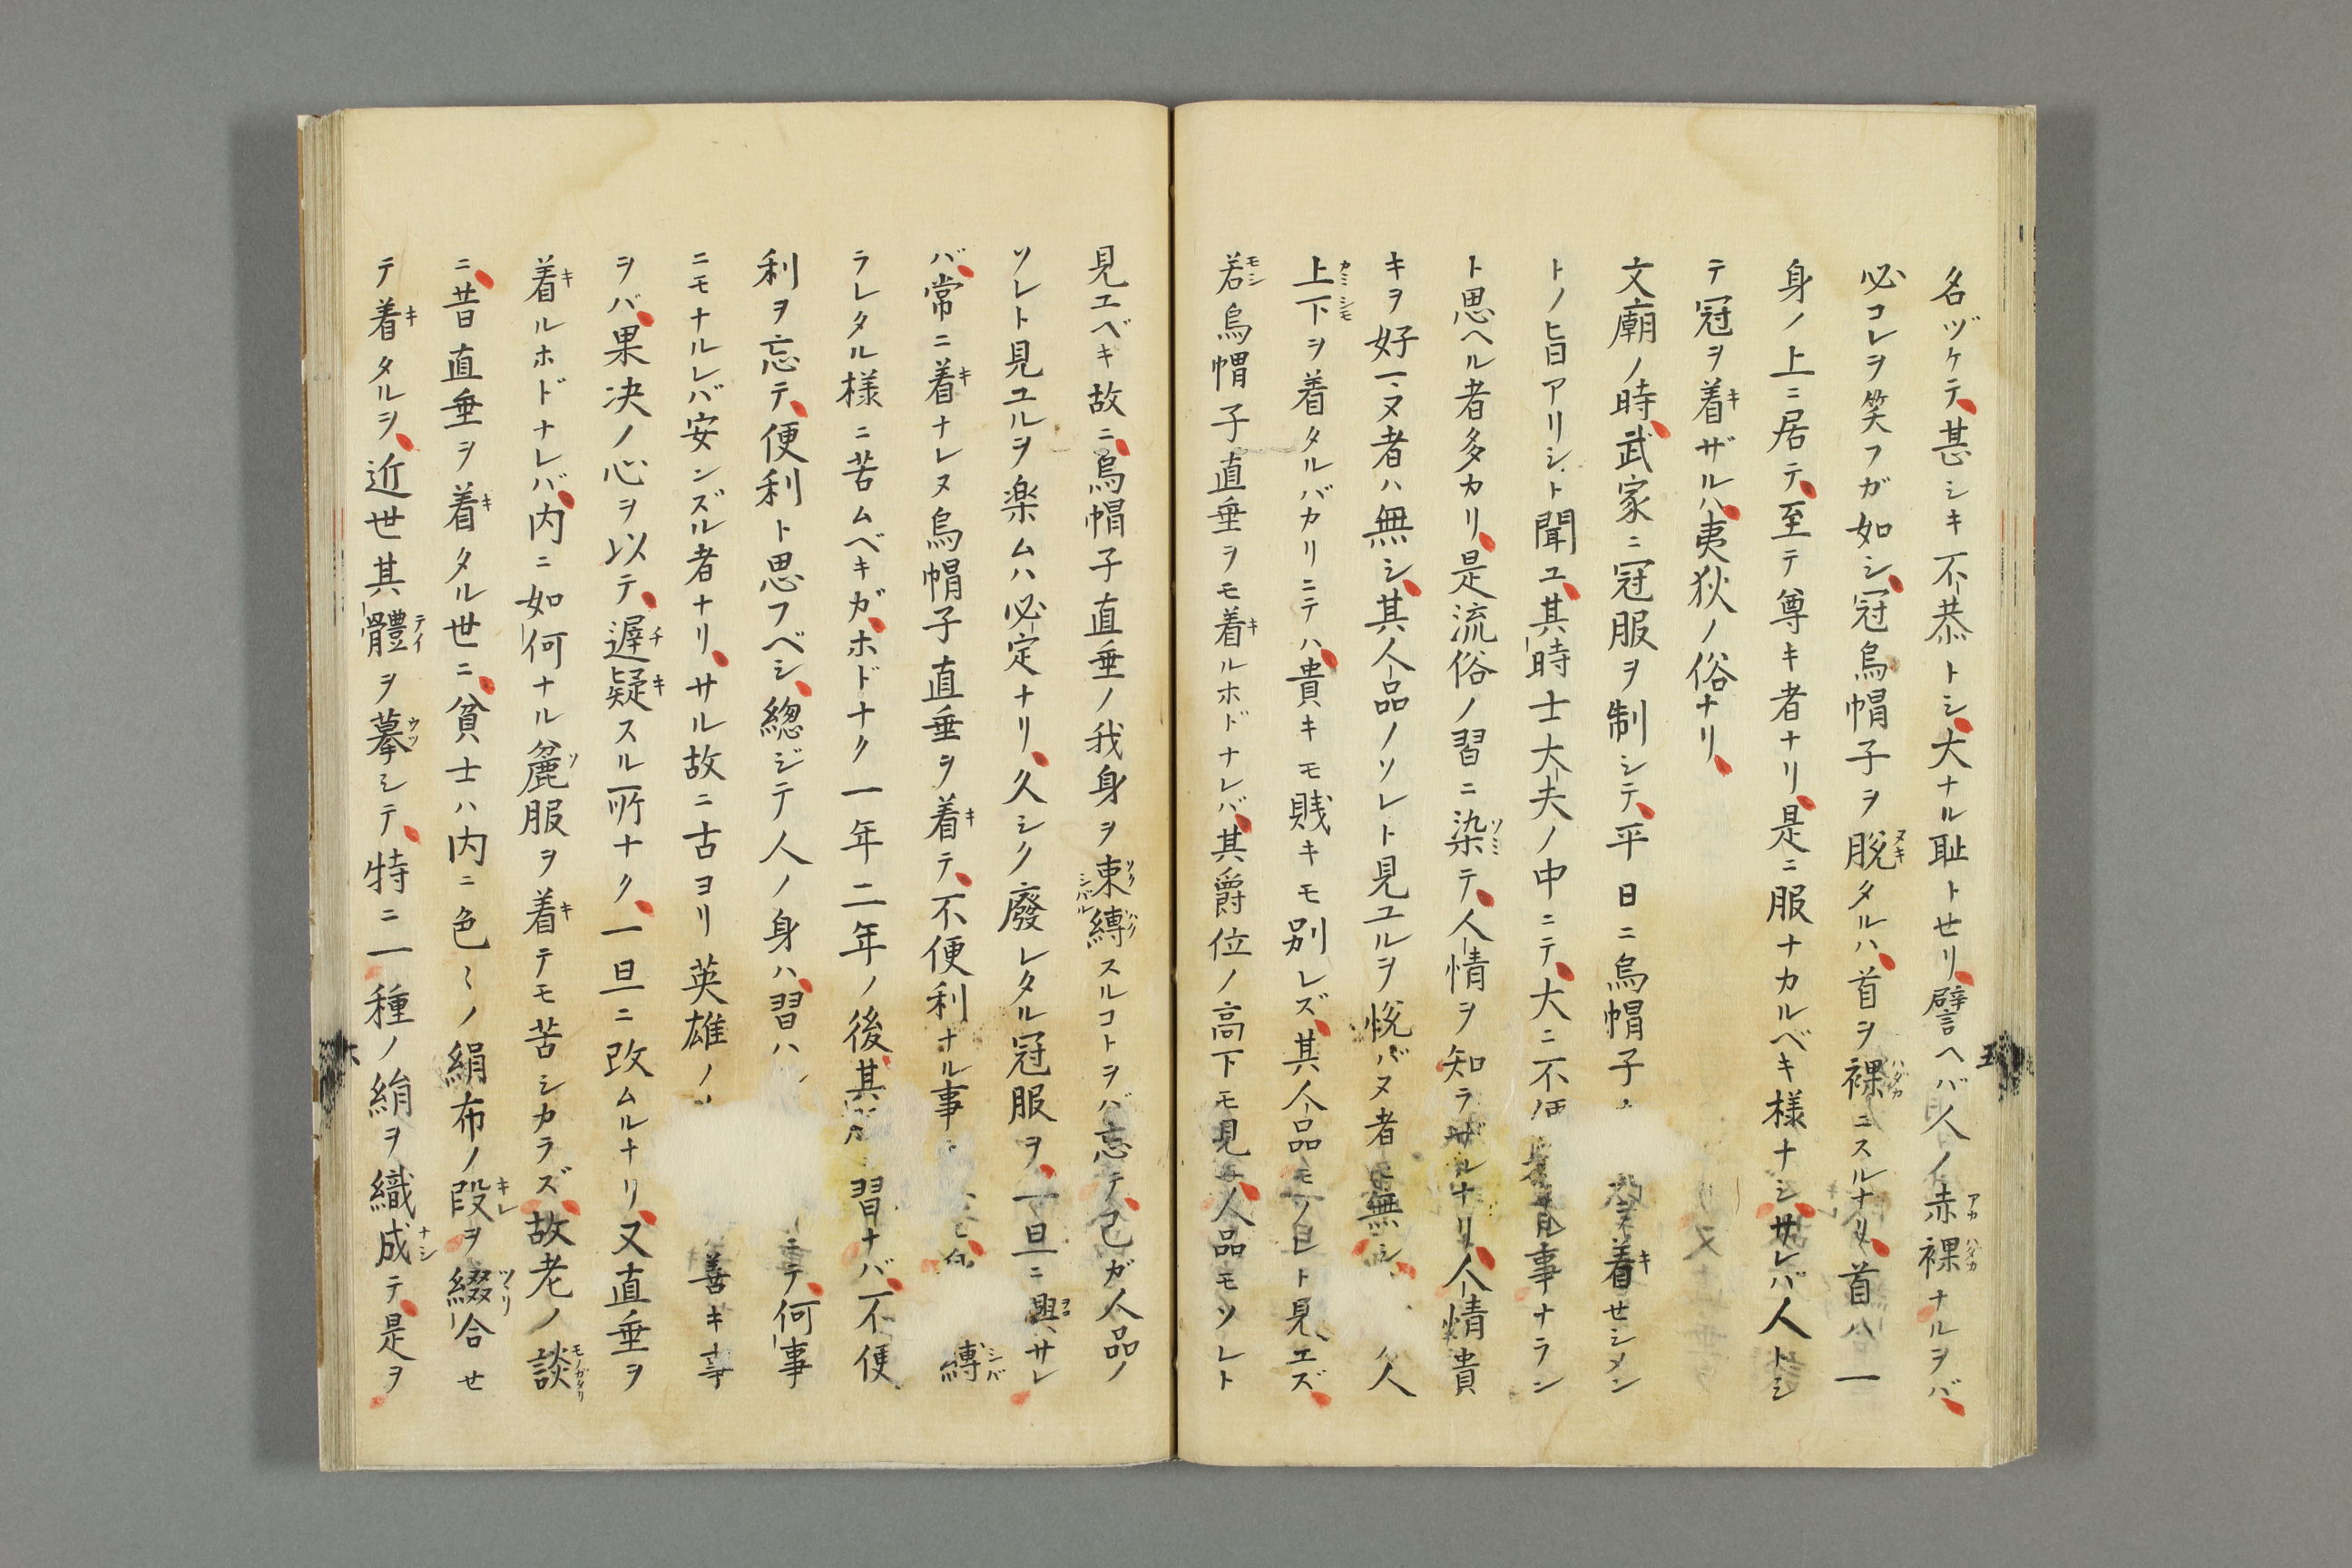 名ヅケテ甚シキ不恭トシ大ナル耻トセリ譬ヘバ人ノ赤裸ナルヲバ
必コレヲ笑フガ如シ冠烏帽子ヲ脱タルハ首ヲ裸ニスルナリ首ハ一
身ノ上ニ居テ至テ尊キ者ナリ是ニ服ナカルベキ様ナシサレバ人トシ
テ冠ヲ着ザルハ夷狄ノ俗ナリ
文廟ノ時武家ニ冠服ヲ制シテ平日ニ烏帽子 着セシメン
トノ旨アリシト聞ユ其時士大夫ノ中ニテ大ニ不 事ナラン
ト思ヘル者多カリ是流俗ノ習ニ染テ人情ヲ知ラザルナリ人情貴
キヲ好マヌ者ハ無シ其人品ノソレト見ユルヲ悦バヌ者モ無シ 人
上下ヲ着タルバカリニテハ貴キモ賎キモ別レズ其人品モソレト見エズ
若烏帽子直垂ヲモ着ルホドナレバ其爵位ノ高下モ見エ人品モソレト
見エベキ故ニ烏帽子直垂ノ我身ヲ束縛スルコトヲバ忘テ己ガ人品ノ
ソレト見ユルヲ楽ムハ必定ナリ久シク廢レタル冠服ヲ一旦ニ興サレ
バ常ニ着ナレヌ烏帽子直垂ヲ着テ不便利ナル事 縛
ラレタル様ニ苦ムベキガホドナク一年二年ノ後其 習ナバ不便
利ヲ忘テ便利ト思フベシ緫ジテ人ノ身ハ習ハ テ何事
ニモナルレバ安ンズル者ナリサル故ニ古ヨリ英雄ノ 善キ事
ヲバ果決ノ心ヲ以テ遲疑スル所ナク一旦ニ改ムルナリ又直垂ヲ
着ルホドナレバ内ニ如何ナル麁服ヲ着テモ苦シカラズ故老ノ談
ニ昔直垂ヲ着タル世ニ貧士ハ内ニ色〻ノ絹布ノ段ヲ綴合セ
テ着タルヲ近世其體ヲ摹シテ特ニ一種ノ絹ヲ織成テ是ヲ